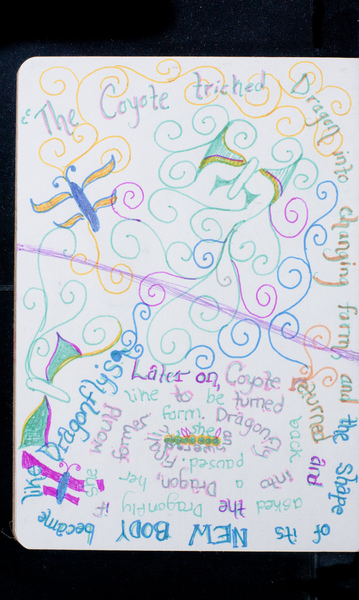 "The Coyote triched Dragon into changing form, and the shape
of its NEW BODY became
like Dragonfly's
Later on, Coyote
returned and
asked the Dragonfly if
she would
like to be turned
back
into a Dragon, her
former
form. Dragonfly
paused.
she